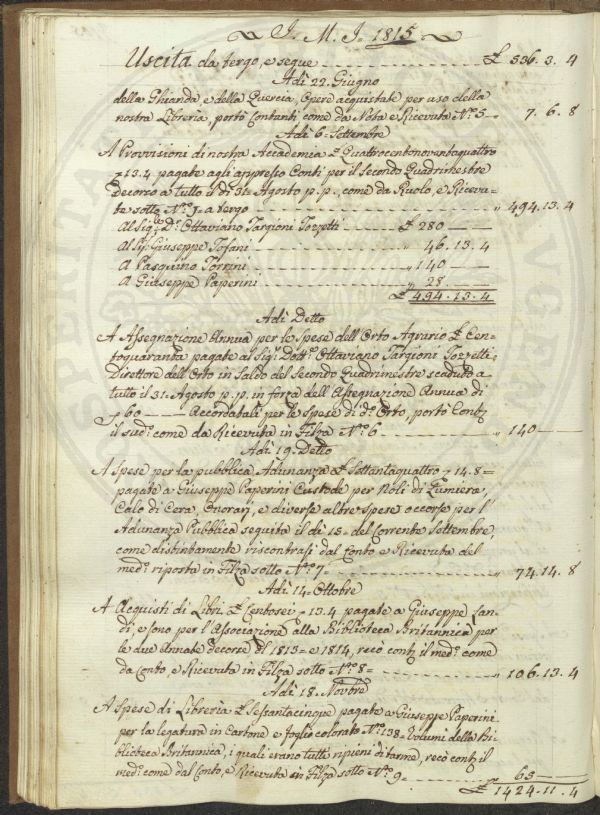 J. M. J. 1815
Uscita da tergo, e segue £ 536. 3. 4
Adì 22. Giugno
della Ghianda, e della Quercia, Opere acquistate per uso della
nostra Libreria, portò Contanti come da Nota e Ricevuta N.º 5 7. 6. 8
Adì 6. Settembre
A Provvisioni di nostra Accademia £ Quattrocentonovantaquattro
13. 4 pagate agli appresso Conti per il Secondo Quadrimestre
decorso a tutto il dì 31. Agosto p. p., come da Ruolo, e Ricevu-
te sotto N.º J. a tergo " 494. 13. 4
Al Sig.r D.r Ottaviano Targioni Tozzetti £ 280
Al S.r Giuseppe Tofani " 46. 13. 4
A Pasquino Torrini " 140
A Giuseppe Paperini " 28
£ 494. 13. 4
Adì Detto
A Assegnazione Annua per le Spese dell'Orto Agrario £ Cen-
toquaranta pagate al Sig.r Dott.r Ottaviano Targioni Tozzetti
Direttore dell'Orto in Saldo del Secondo Quadrimestre scaduto a
tutto il 31. Agosto p. p. in forza dell'Assegnazione Annua di
60 Accordatali per le Spese di d.º Orto, portò Cont.i
il sud.º come da Ricevuta in Filza N.º 6 " 140
Adì 19. Detto
A Spese per la pubblica Adunanza £ Settantaquattro 14. 8 =
pagate a Giuseppe Paperini Custode per Noli di Lumiere,
Calo di Cera, Onorarj, e diverse altre Spese occorse per l'
Adunanza Pubblica seguita il dì 15. del Corrente Settembre,
come distintamente riscontrasi dal Conto e Ricevuta del
med.º riposta in Filza sotto N.º 7 " 74. 14. 8
Adì 14. Ottobre
A Acquisti di Libri £ Centosei 13. 4 pagate a Giuseppe Lan-
di, e sono per l'Associazione alla Biblioteca Britannica per
le due Annate decorse del 1813 = e 1814, recò Cont.i il med.º come
da Conto, e Ricevuta in Filza sotto N.º 8 = " 106. 13. 4
Adì 18. Novbre
A Spese di Libreria £ Sessantacinque pagate a Giuseppe Paperini
per la legatura in Cartone e foglio colorato N.º 138 = Volumi della Bi-
blioteca Britannica, i quali erano tutti ripieni di tarme, recò Cont.i il
med.º come dal Conto, e Ricevuta in Filza sotto N.º 9 65
£ 1424. 11. 4